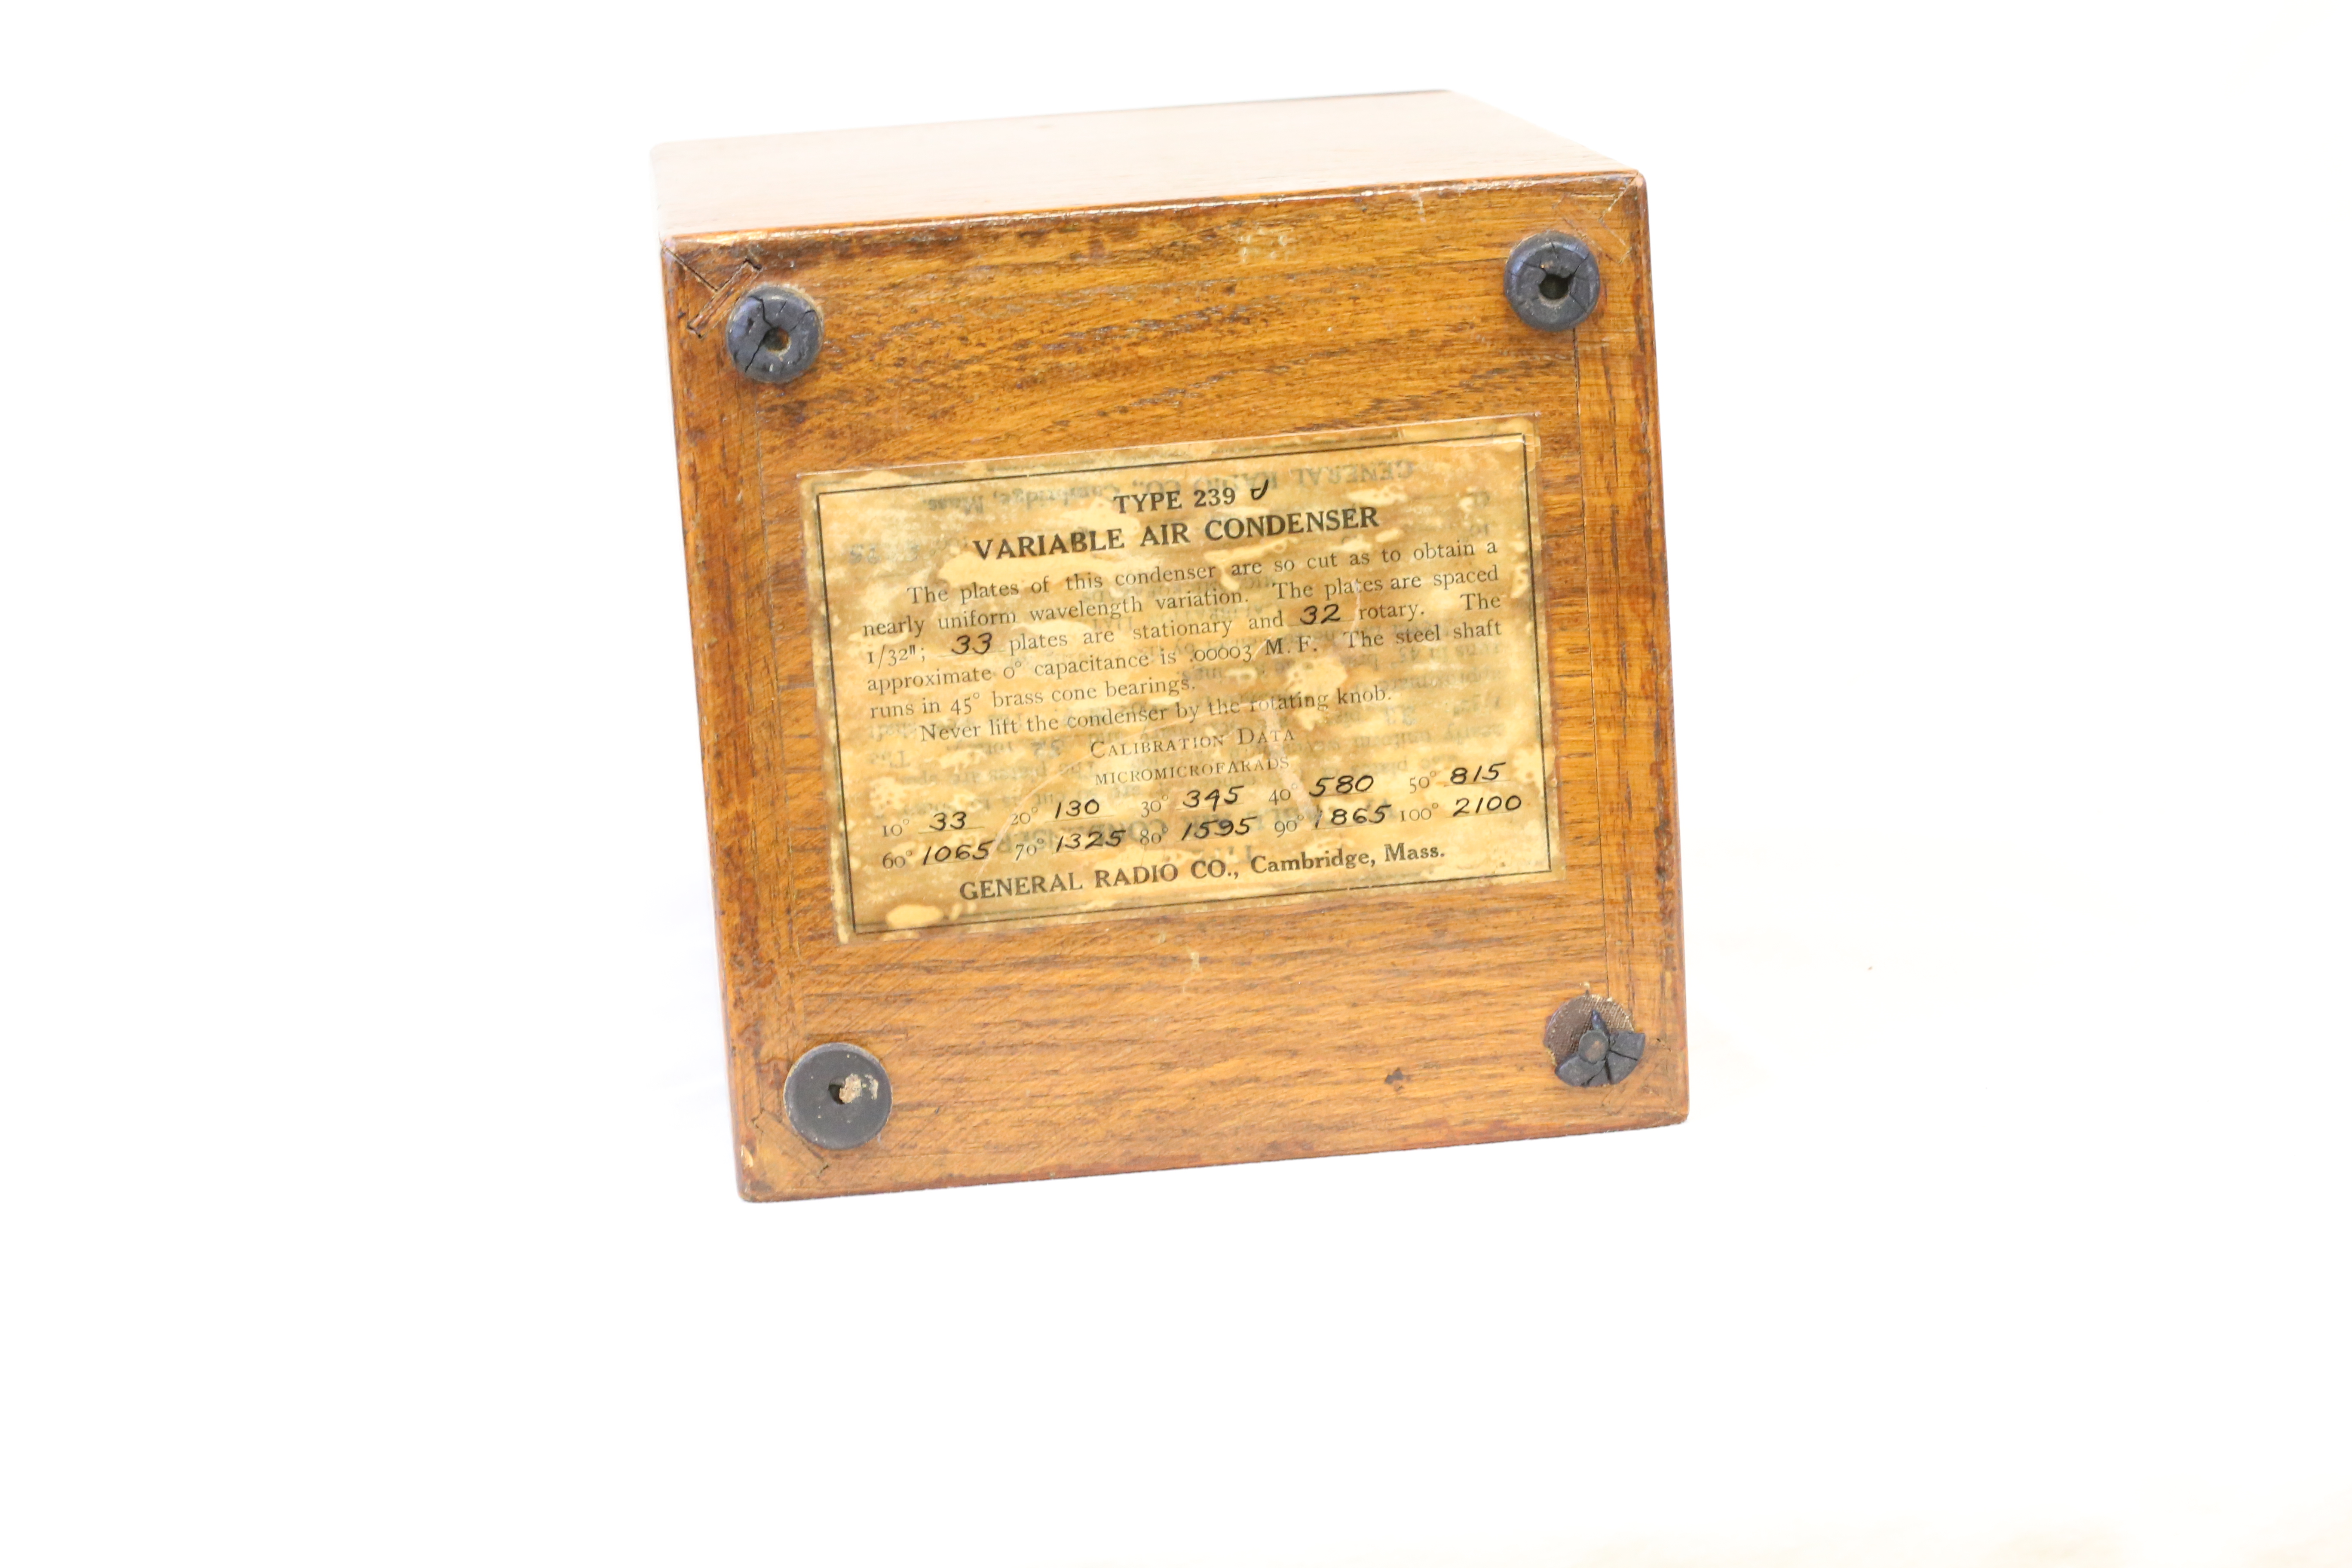 TYPE 239 J
VARIABLE AIR CONDENSER
The plates of this condenser are so cut as to obtain a
nearly uniform wavelength variation. The plates are spaced
1/32"; 33 plates are stationary and 32 rotary. The
approximate 0° capacitance is .00003 M. F. The steel shaft
runs in 45° brass cone bearings.
Never lift the condenser by the rotating knob.
CALIBRATION DATA
MICROMICROFARADS
10° 33 20° 130 30° 345 40° 580 50° 815
60° 1065 70° 1325 80° 1595 90° 1865 100° 2100
GENERAL RADIO CO., Cambridge, Mass.